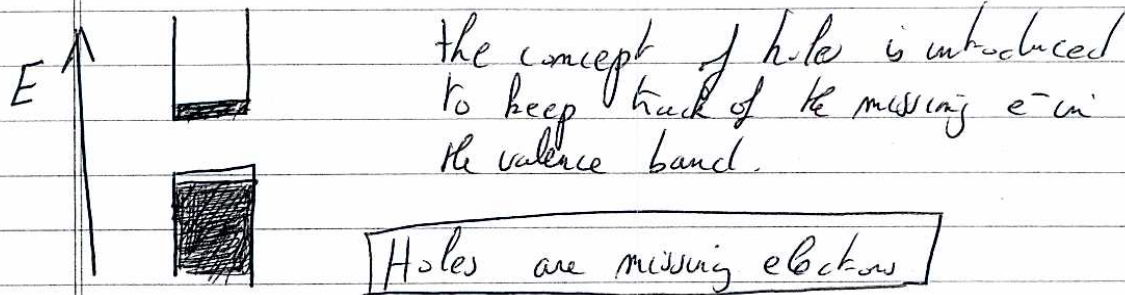 the concept of holes is introduced
E
to keep track of the missing e⁻ in
the valence band.
Holes are missing electrons